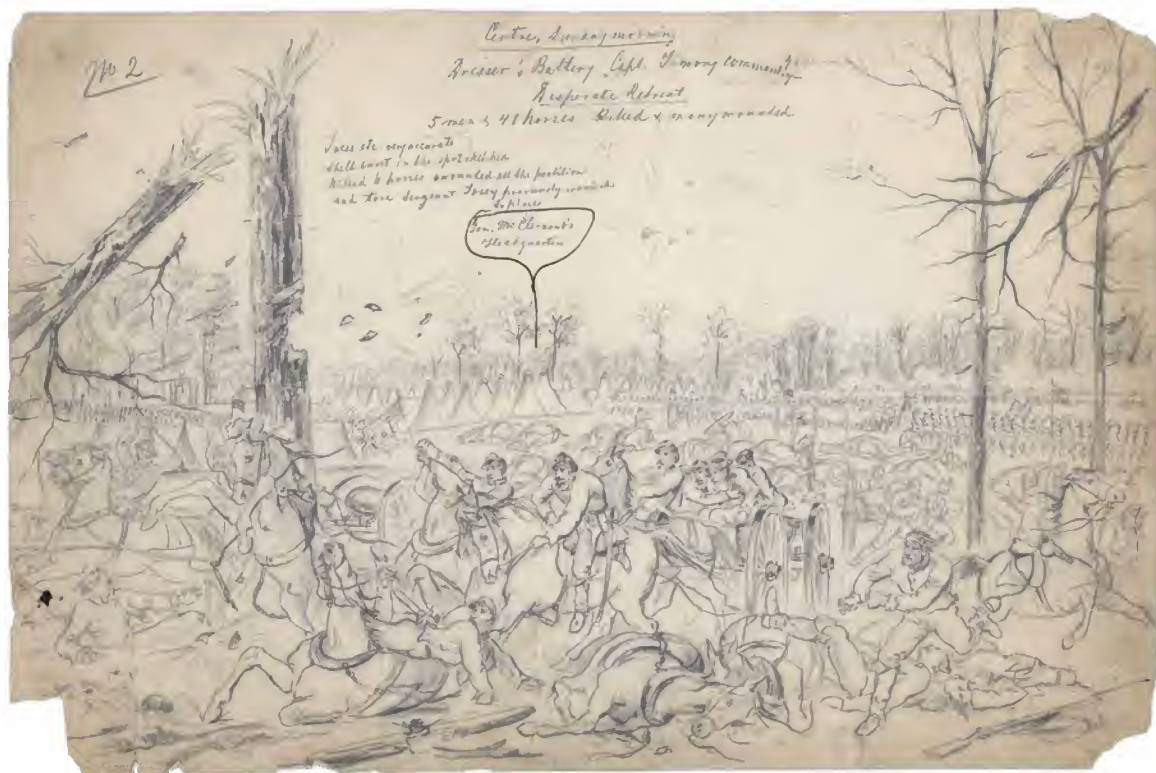 No 2
Centre, Sunday morning
Dresser's Battery, Capt. Timony command'g
Desperate Retreat
5 men & 48 horses Killed & many wounded
Faces etc. very accurate
Shell burst in the spot sketched
Killed 6 horses wounded all the postilion
and tore Sergeant Tosey previously wounded
to pieces
Gen. McClernand's
Headquarters